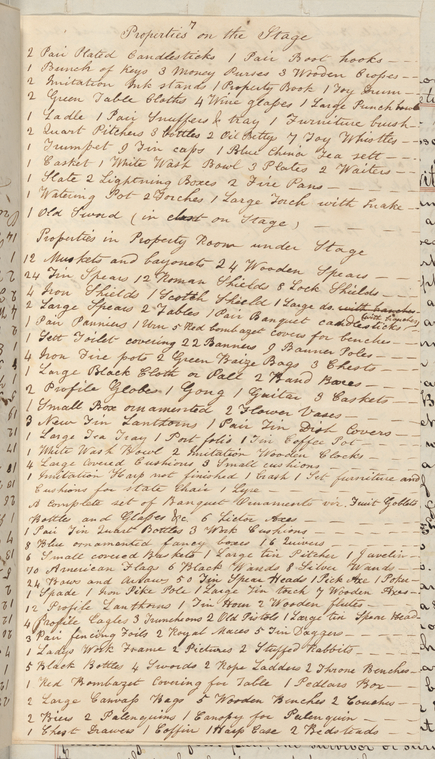 Properties on the Stage
2 Pair Plated Candlesticks 1 Pair Boot hooks
1 Bunch of keys 3 Money Purses 3 Wooden Cropes
2 Imitation Ink stands 1 Property Book 1 Toy Drum
2 Green Table Cloths 4 Wine glasses 1 Large Punch bowl
1 Ladle 1 Pair Snuffers & tray 1 Furniture brush
2 Quart Pitchers 3 bottles 2 Oil Bettys 7 Toy Whistles
1 Trumpet 9 Tin caps 1 Blue china Tea sett
1 Casket 1 White Wash Bowl 3 Plates 2 Waiters
1 Slate 2 Lightning Boxes 2 Fire Pans
1 Watering Pot 2 Torches 1 Large Torch with Snake
1 Old Sword (in on Stage)
Properties in Property Room under Stage
12 Muskets and bayonets 24 Wooden Spears
24 Tin Spears 12 Roman Shields 8 Lock Shields
4 Iron Shields 1 Scotch Shield 1 Large do. with
2 Large Spears 2 Tables 1 Pair Banquet candlesticks
1 Pair Panniers 1 Urn 5 Red bombazet covers for benches
1 Sett Toilet covering 22 Banners 9 Banner Poles
4 Iron Fire pots 2 Green Baize Bags 3 Chests
1 Large Black Cloth or Pall 2 Band Boxes
2 Profile Globes 1 Gong 1 Guitar 3 Caskets
1 Small Box ornamented 2 Flower Vases
3 New Tin Lanthorns 1 Pair Tin Dish Covers
1 Large Tea Tray 1 Port folio 1 Tin Coffee Pot
1 White Wash Bowl 2 Imitation Wooden Clocks
4 Large Covered Cushions 3 Small cushions
1 Imitation Harp not finished 1 Cash 1 Set furniture and
Cushions for State Chair 1 Lyre
A complete set of Banquet Ornaments viz. Fruit Goblets
Bottles and Glasses &c. 6 Lictor Axes
1 Pair Tin Quart Bottles 3 Work Cushions
8 Blue ornamented fancy boxes 16 Quivers
6 Small covered Baskets 1 Large tin Pitcher 1 Javelin
20 American Flags 6 Black Wands 8 Silver Wands
24 Bows and Arrows 50 Tin Spear Heads 1 Pick Axe 1 Poker
1 Spade 1 Iron Pike Pole 1 Large Tin torch 7 Wooden Axes
12 Profile Lanthorns 1 Tin Horn 2 Wooden flutes
4 Profile Eagles 3 Truncheons 2 Old Pistols 1 Large tin Spear Head
3 Pair fencing Foils 2 Royal Maces 5 Tin Daggers
1 Ladys Work Frame 2 Pictures 2 Stuffed Rabbits
5 Black Bottles 4 Swords 2 Rope Ladders 2 Throne Benches
1 Red Bombazet Covering for Table 1 Pedlars Box
2 Large Canvass Bags 5 Wooden Benches 2 Couches
2 Biers 2 Palenquins 1 Canopy for Palenquin
1 Chest Drawers 1 Coffin 1 Harp Case 2 Bedsteads